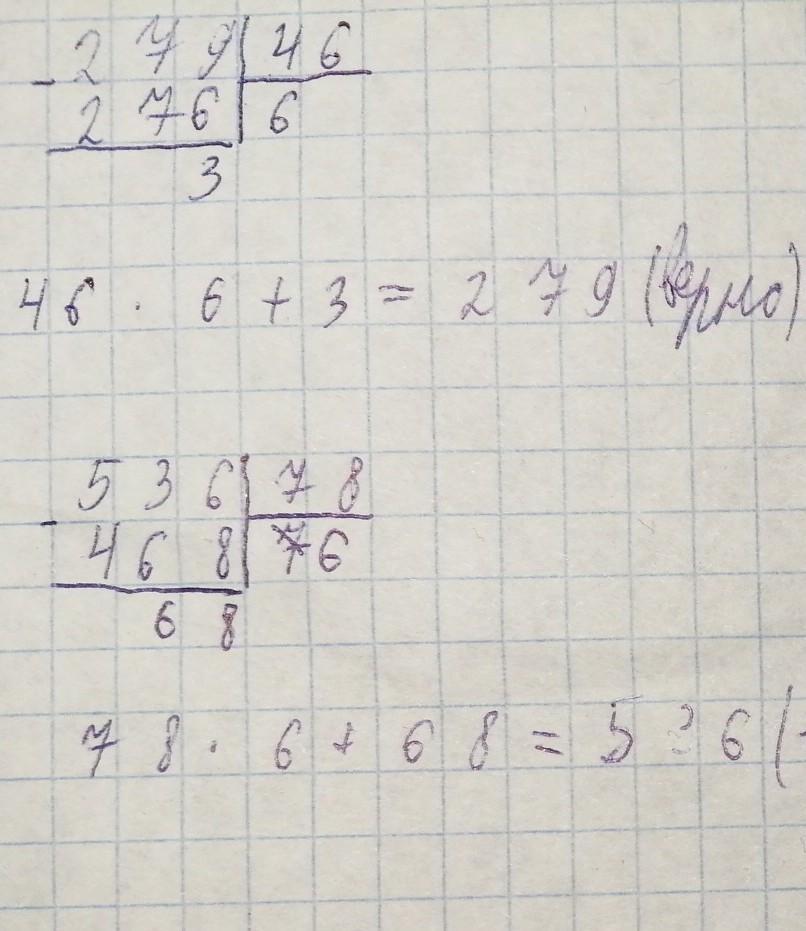 - 279 | 46
276 | 6
3
46 · 6 + 3 = 279 (верно)
- 536 | 78
468 | 6
68
78 · 6 + 68 = 536 (